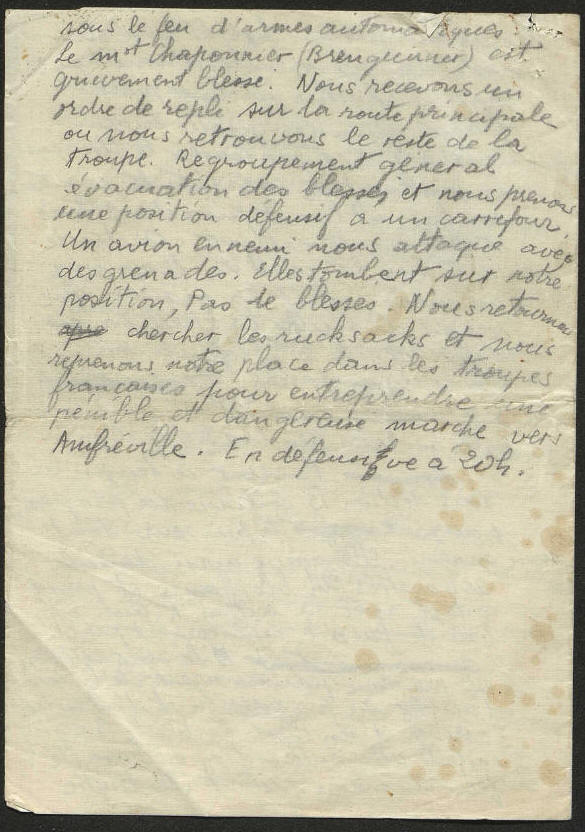 sous le feu d'armes automatiques.
Le mᵒᵗ Chaponnier (Brenguenner) est
grièvement blessé. Nous recevons un
ordre de repli sur la route principale
ou nous retrouvons le reste de la
troupe. Regroupement general
évacuation des blessés et nous prenons
une position défensif a un carrefour.
Un avion ennemi nous attaque avec
des grenades. Elles tombent sur notre
position, Pas de blesses. Nous retournons
chercher les rucksacks et nous
reprenons notre place dans les troupes
francaises pour entreprendre une
pénible et dangereuse marche vers
Amfreville. En défensive a 20h.